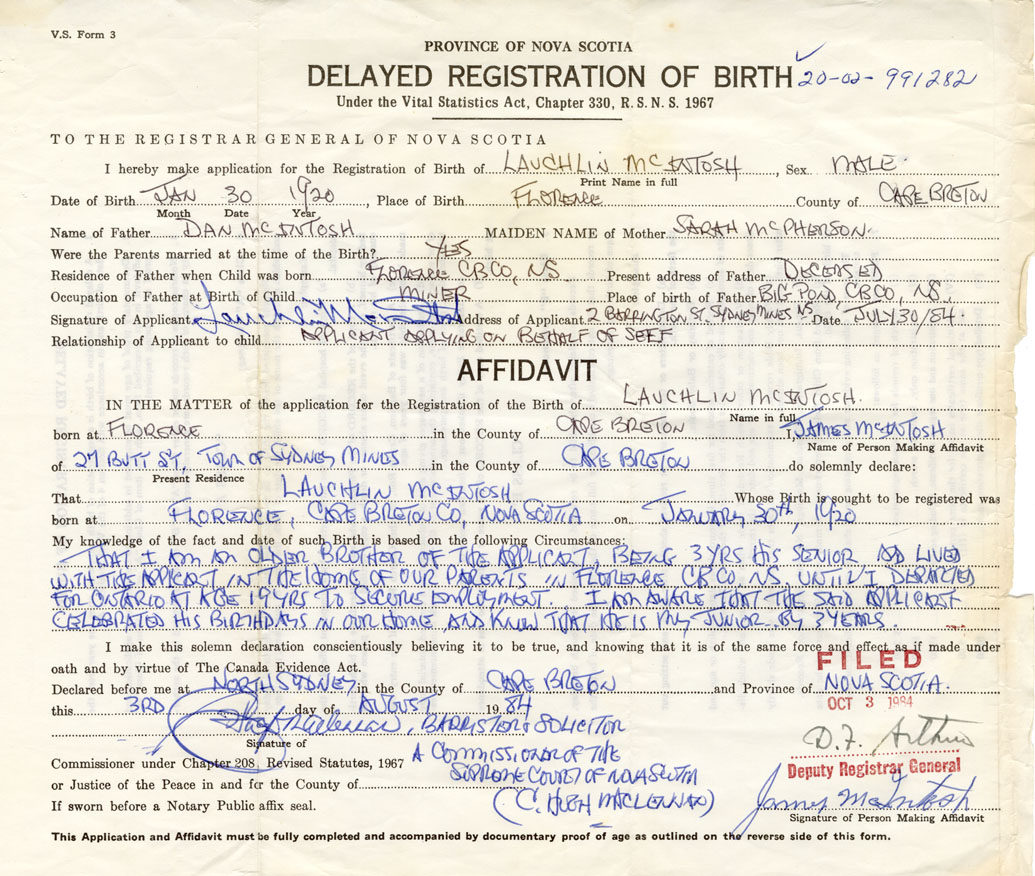 V.S. Form 3
PROVINCE OF NOVA SCOTIA
DELAYED REGISTRATION OF BIRTH 20-02-991282
Under the Vital Statistics Act, Chapter 330, R.S.N.S. 1967
TO THE REGISTRAR GENERAL OF NOVA SCOTIA
I hereby make application for the Registration of Birth of LAUCHLIN MCINTOSH, Sex MALE.
Print Name in full
Date of Birth JAN 30 1920, Place of Birth FLORENCE, County of CAPE BRETON
Month Date Year
Name of Father DAN MCINTOSH MAIDEN NAME of Mother SARAH MCPHERSON.
Were the Parents married at the time of the Birth? YES
Residence of Father when Child was born FLORENCE CB CO, NS Present address of Father DECEASED
Occupation of Father at Birth of Child MINER Place of birth of Father BIG POND, CB CO, NS.
Signature of Applicant Lauchlin McIntosh Address of Applicant 2 BARRINGTON ST. SYDNEY MINES NS Date JULY 30/84.
Relationship of Applicant to child APPLICANT APPLYING ON BEHALF OF SELF
AFFIDAVIT
IN THE MATTER of the application for the Registration of the Birth of LAUCHLIN MCINTOSH.
Name in full
born at FLORENCE in the County of CAPE BRETON I, JAMES MCINTOSH
Name of Person Making Affidavit
of 27 BUTT ST, TOWN OF SYDNEY MINES in the County of CAPE BRETON do solemnly declare:
Present Residence
That LAUCHLIN MCINTOSH Whose Birth is sought to be registered was
born at FLORENCE, CAPE BRETON CO, NOVA SCOTIA on JANUARY 30th, 1920
My knowledge of the fact and date of such Birth is based on the following Circumstances:
THAT I AM AN OLDER BROTHER OF THE APPLICANT, BEING 3 YRS HIS SENIOR, AND LIVED
WITH THE APPLICANT IN THE HOME OF OUR PARENTS IN FLORENCE CB CO. NS, UNTIL I DEPARTED
FOR ONTARIO AT AGE 19 YRS TO SECURE EMPLOYMENT. I AM AWARE THAT THE SAID APPLICANT
CELEBRATED HIS BIRTHDAYS IN OUR HOME, AND KNEW THAT HE IS MY JUNIOR BY 3 YEARS.
I make this solemn declaration conscientiously believing it to be true, and knowing that it is of the same force and effect as if made under
oath and by virtue of The Canada Evidence Act.
FILED
Declared before me at NORTH SYDNEY in the County of CAPE BRETON and Province of NOVA SCOTIA.
OCT 3 1984
this 3RD day of AUGUST 1984
BARRISTER & SOLICITOR
Signature of
A COMMISSIONER OF THE
D.F. Arthur
Commissioner under Chapter 208, Revised Statutes, 1967
SUPREME COURT OF NOVA SCOTIA
Deputy Registrar General
or Justice of the Peace in and for the County of
(C. HUGH MACLENNAN)
James McIntosh
If sworn before a Notary Public affix seal.
Signature of Person Making Affidavit
This Application and Affidavit must be fully completed and accompanied by documentary proof of age as outlined on the reverse side of this form.